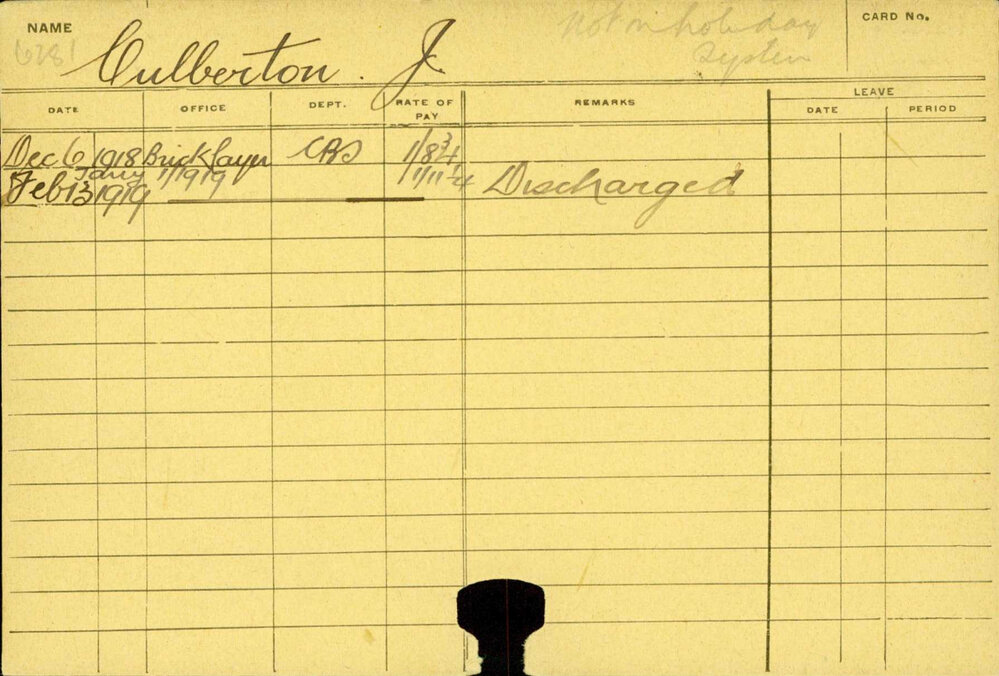 NAME
6281
Culberton. J.
Not in holiday
System
CARD No.
DATE OFFICE DEPT. RATE OF PAY REMARKS LEAVE DATE PERIOD
Dec 6 1918 Bricklayer CBS 1/8¾
Jany 1/1919 1/11¼
Feb 13 1919 Discharged